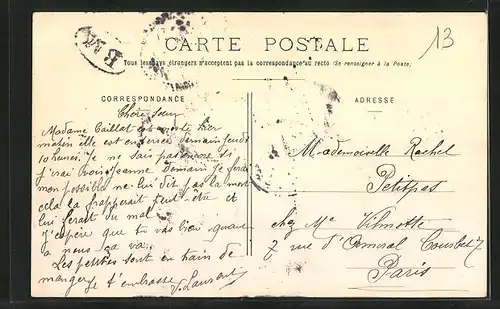 B M
13
CARTE POSTALE
Tous les pays étrangers n'acceptent pas la correspondance au recto (Se renseigner à la Poste)
CORRESPONDANCE
Chère sœur
Madame Caillat est morte hier
matin elle est enterrée demain jeudi
10 heures. Je ne sais pas encore si
j'irai voir Jeanne demain je ferai
mon possible ne lui dit pas la mort
cela la frapperait peut être et
lui ferait du mal
J'espère que tu vas bien quant
a nous ça va.
Les petites sont en train de
manger je t'embrasse J. Laurent
ADRESSE
Mademoiselle Rachel
Petitpas
chez Me Vilmotte
2 rue d'Amiral Courbet 7
Paris